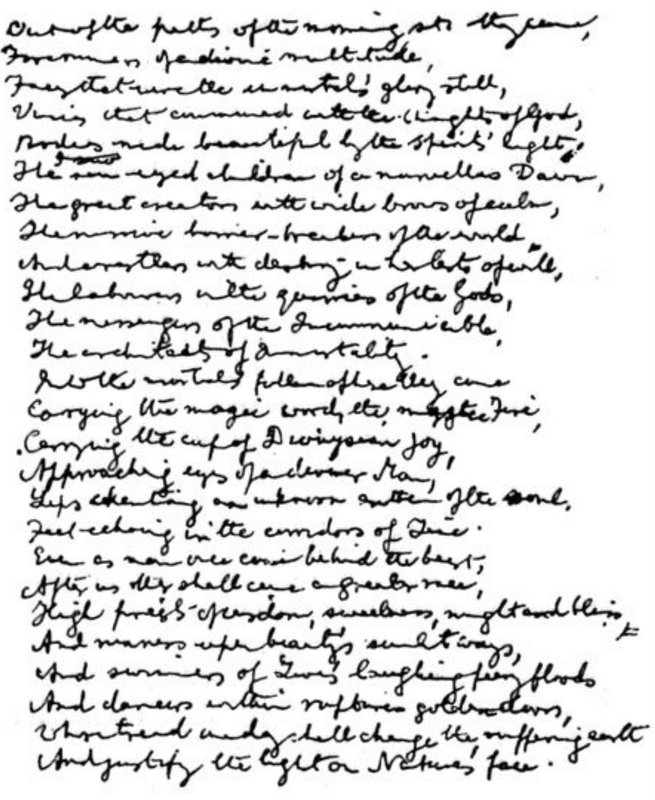 Out of the paths of the morning star they came,
Forerunners of a divine multitude,
Faces that wore the immortal's glory still,
Voices that communed with the thoughts of God,
Bodies made beautiful by the Spirit's light,
The sun-eyed children of a marvellous Dawn,
The great creators with wide brows of calm,
The massive barrier-breakers of the world
And wrestlers with destiny in her lists of will,
The labourers in the quarries of the Gods,
The messengers of the Incommunicable,
The architects of Immortality.
Into the mortals' fallen they came
Carrying the magic word, the mystic Fire,
Carrying the cup of Dionysian joy,
Approaching eyes of a diviner Man,
Lips chanting an unknown anthem of the soul,
Feet echoing in the corridors of Time.
Even as man once came behind the beast,
After us they shall come a greater race,
High priests of wisdom, sweetness, might and bliss,
And runners upon beauty's sunlit ways,
And swimmers of Love's laughing fiery floods
And dancers within rapture's golden doors,
Whose tread one day shall change the suffering earth
And justify the light on Nature's face.